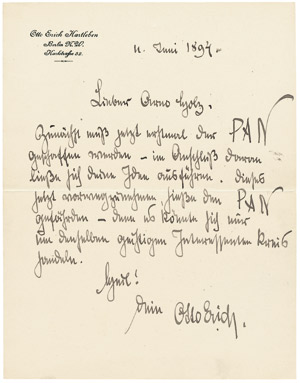 Otto Erich Hartleben
Berlin N.W.
Karlstraße 32.
11. Juni 1894.
Lieber Arno Holz,
Zunächst muß jetzt erstmal der PAN
geschaffen werden – im Anschluß daran
ließe sich deine Idee ausführen. Dieses
jetzt vorwegzunehmen hieße den PAN
gefährden – denn es könnte sich nur
um denselben geistigen Interessenten Kreis
handeln.
Dein
Otto Erich.